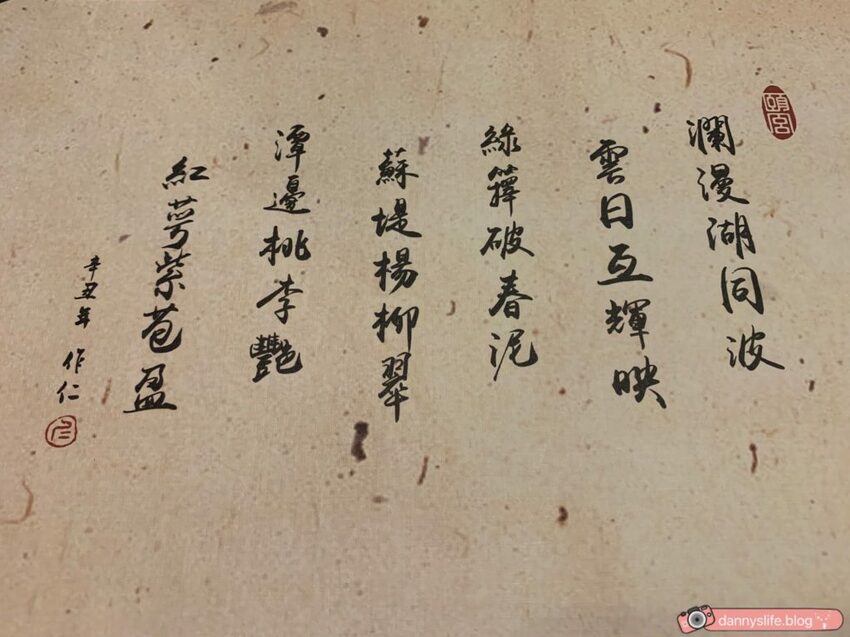 頤宮
瀾漫湖同波
雲日互輝映
綠籜破春泥
蘇堤楊柳翠
潭邊桃李艷
紅萼紫苞盈
辛丑年 作仁
dannyslife.blog